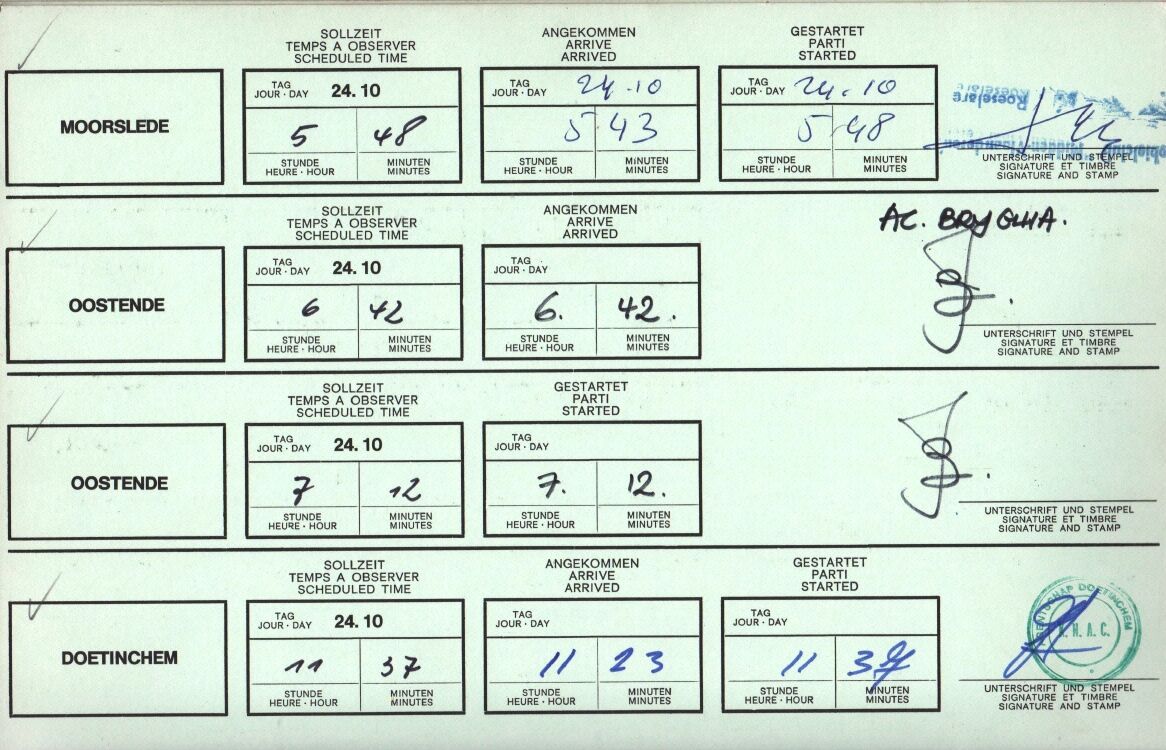 SOLLZEIT
TEMPS A OBSERVER
SCHEDULED TIME
ANGEKOMMEN
ARRIVE
ARRIVED
GESTARTET
PARTI
STARTED
MOORSLEDE
TAG
JOUR · DAY 24.10
5 48
STUNDE
HEURE · HOUR
MINUTEN
MINUTES
TAG
JOUR · DAY 24.10
5 43
STUNDE
HEURE · HOUR
MINUTEN
MINUTES
TAG
JOUR · DAY 24.10
5 48
STUNDE
HEURE · HOUR
MINUTEN
MINUTES
Roeselare
UNTERSCHRIFT UND STEMPEL
SIGNATURE ET TIMBRE
SIGNATURE AND STAMP
SOLLZEIT
TEMPS A OBSERVER
SCHEDULED TIME
ANGEKOMMEN
ARRIVE
ARRIVED
OOSTENDE
TAG
JOUR · DAY 24.10
6 42
STUNDE
HEURE · HOUR
MINUTEN
MINUTES
TAG
JOUR · DAY
6. 42.
STUNDE
HEURE · HOUR
MINUTEN
MINUTES
AC.
UNTERSCHRIFT UND STEMPEL
SIGNATURE ET TIMBRE
SIGNATURE AND STAMP
SOLLZEIT
TEMPS A OBSERVER
SCHEDULED TIME
GESTARTET
PARTI
STARTED
OOSTENDE
TAG
JOUR · DAY 24.10
7 12
STUNDE
HEURE · HOUR
MINUTEN
MINUTES
TAG
JOUR · DAY
7. 12.
STUNDE
HEURE · HOUR
MINUTEN
MINUTES
UNTERSCHRIFT UND STEMPEL
SIGNATURE ET TIMBRE
SIGNATURE AND STAMP
SOLLZEIT
TEMPS A OBSERVER
SCHEDULED TIME
ANGEKOMMEN
ARRIVE
ARRIVED
GESTARTET
PARTI
STARTED
DOETINCHEM
TAG
JOUR · DAY 24.10
11 37
STUNDE
HEURE · HOUR
MINUTEN
MINUTES
TAG
JOUR · DAY
11 23
STUNDE
HEURE · HOUR
MINUTEN
MINUTES
TAG
JOUR · DAY
11 37
STUNDE
HEURE · HOUR
MINUTEN
MINUTES
DOETINCHEM
N.A.C.
UNTERSCHRIFT UND STEMPEL
SIGNATURE ET TIMBRE
SIGNATURE AND STAMP